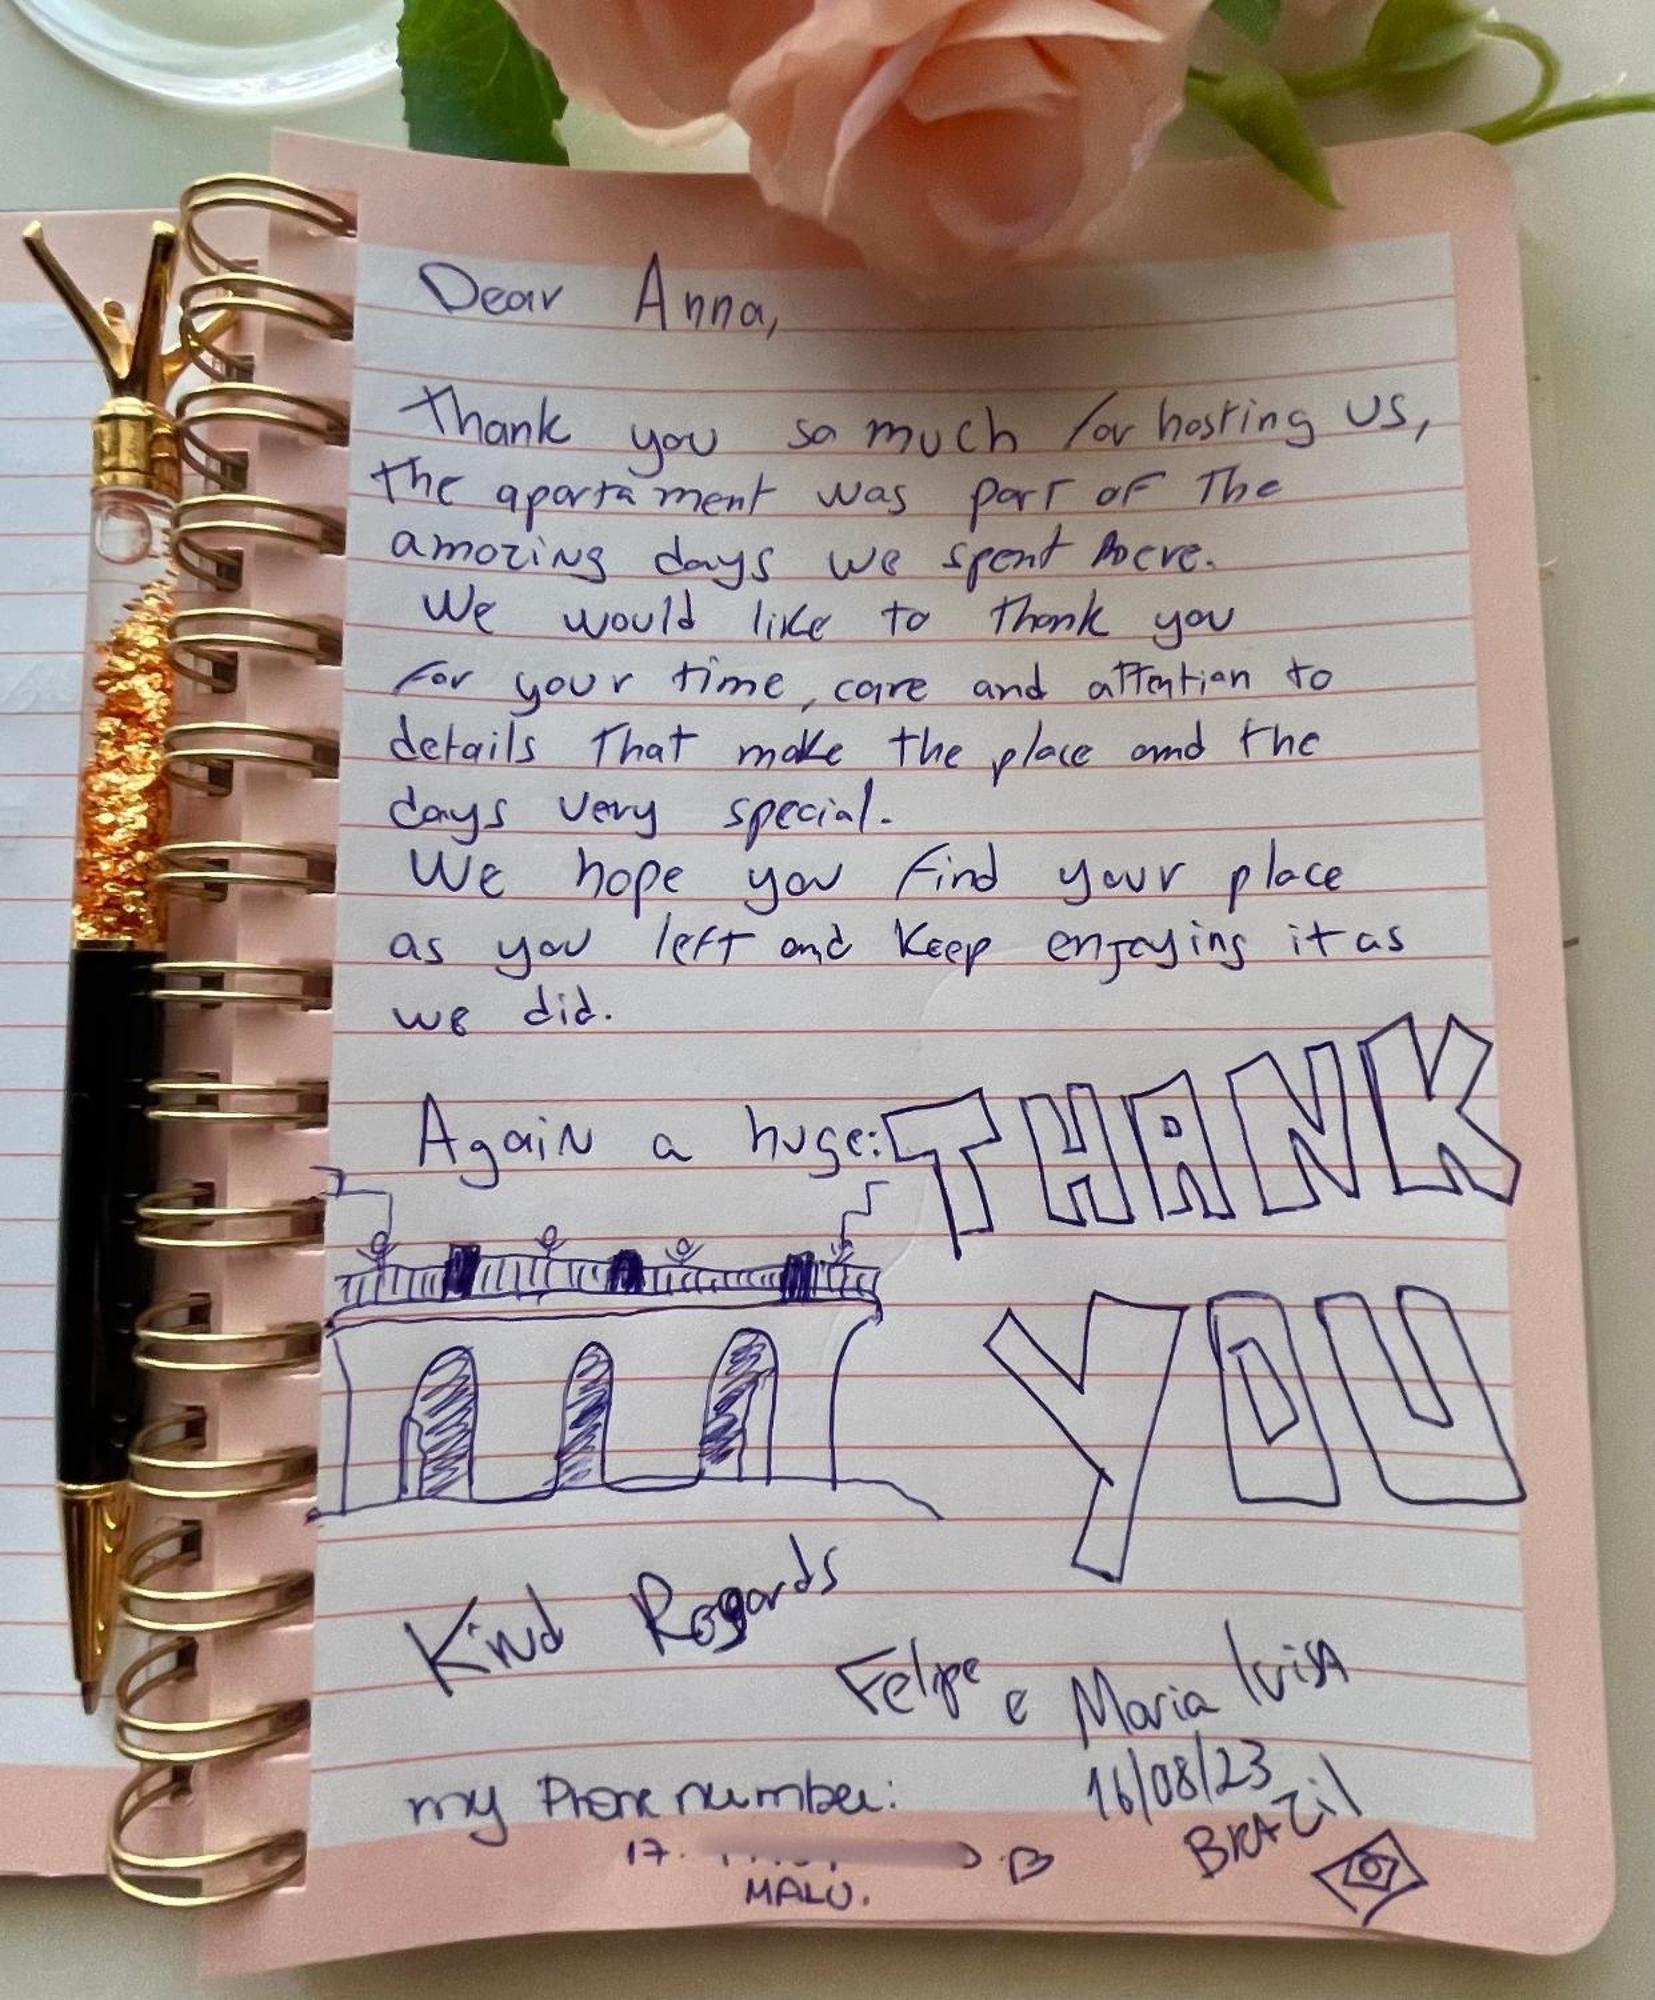 Dear Anna,
Thank you so much for hosting us,
the apartament was part of the
amazing days we spent here.
We would like to thank you
for your time, care and attention to
details that make the place and the
days very special.
We hope you find your place
as you left and keep enjoying it as
we did.
Again a huge: THANK
YOU
Kind Regards
Felipe e Maria luisa
16/08/23
BRAZil
my Phone number:
17.
MALU.